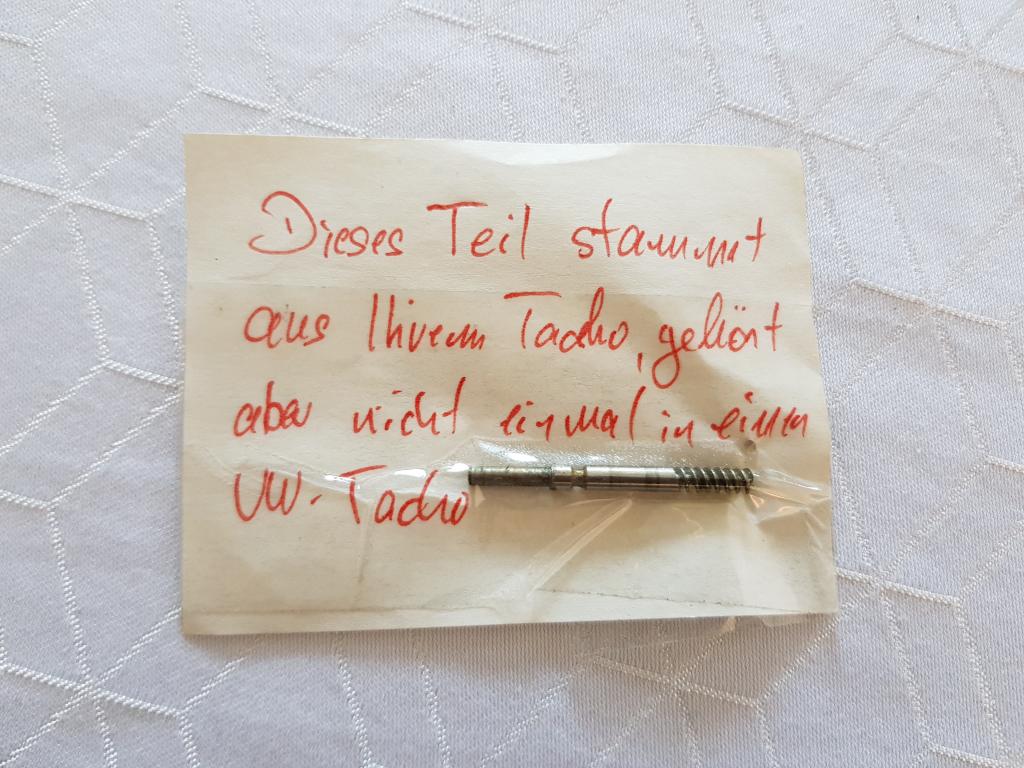 Dieses Teil stammt
aus Ihrem Tacho, gehört
aber nicht einmal in einen
VW-Tacho